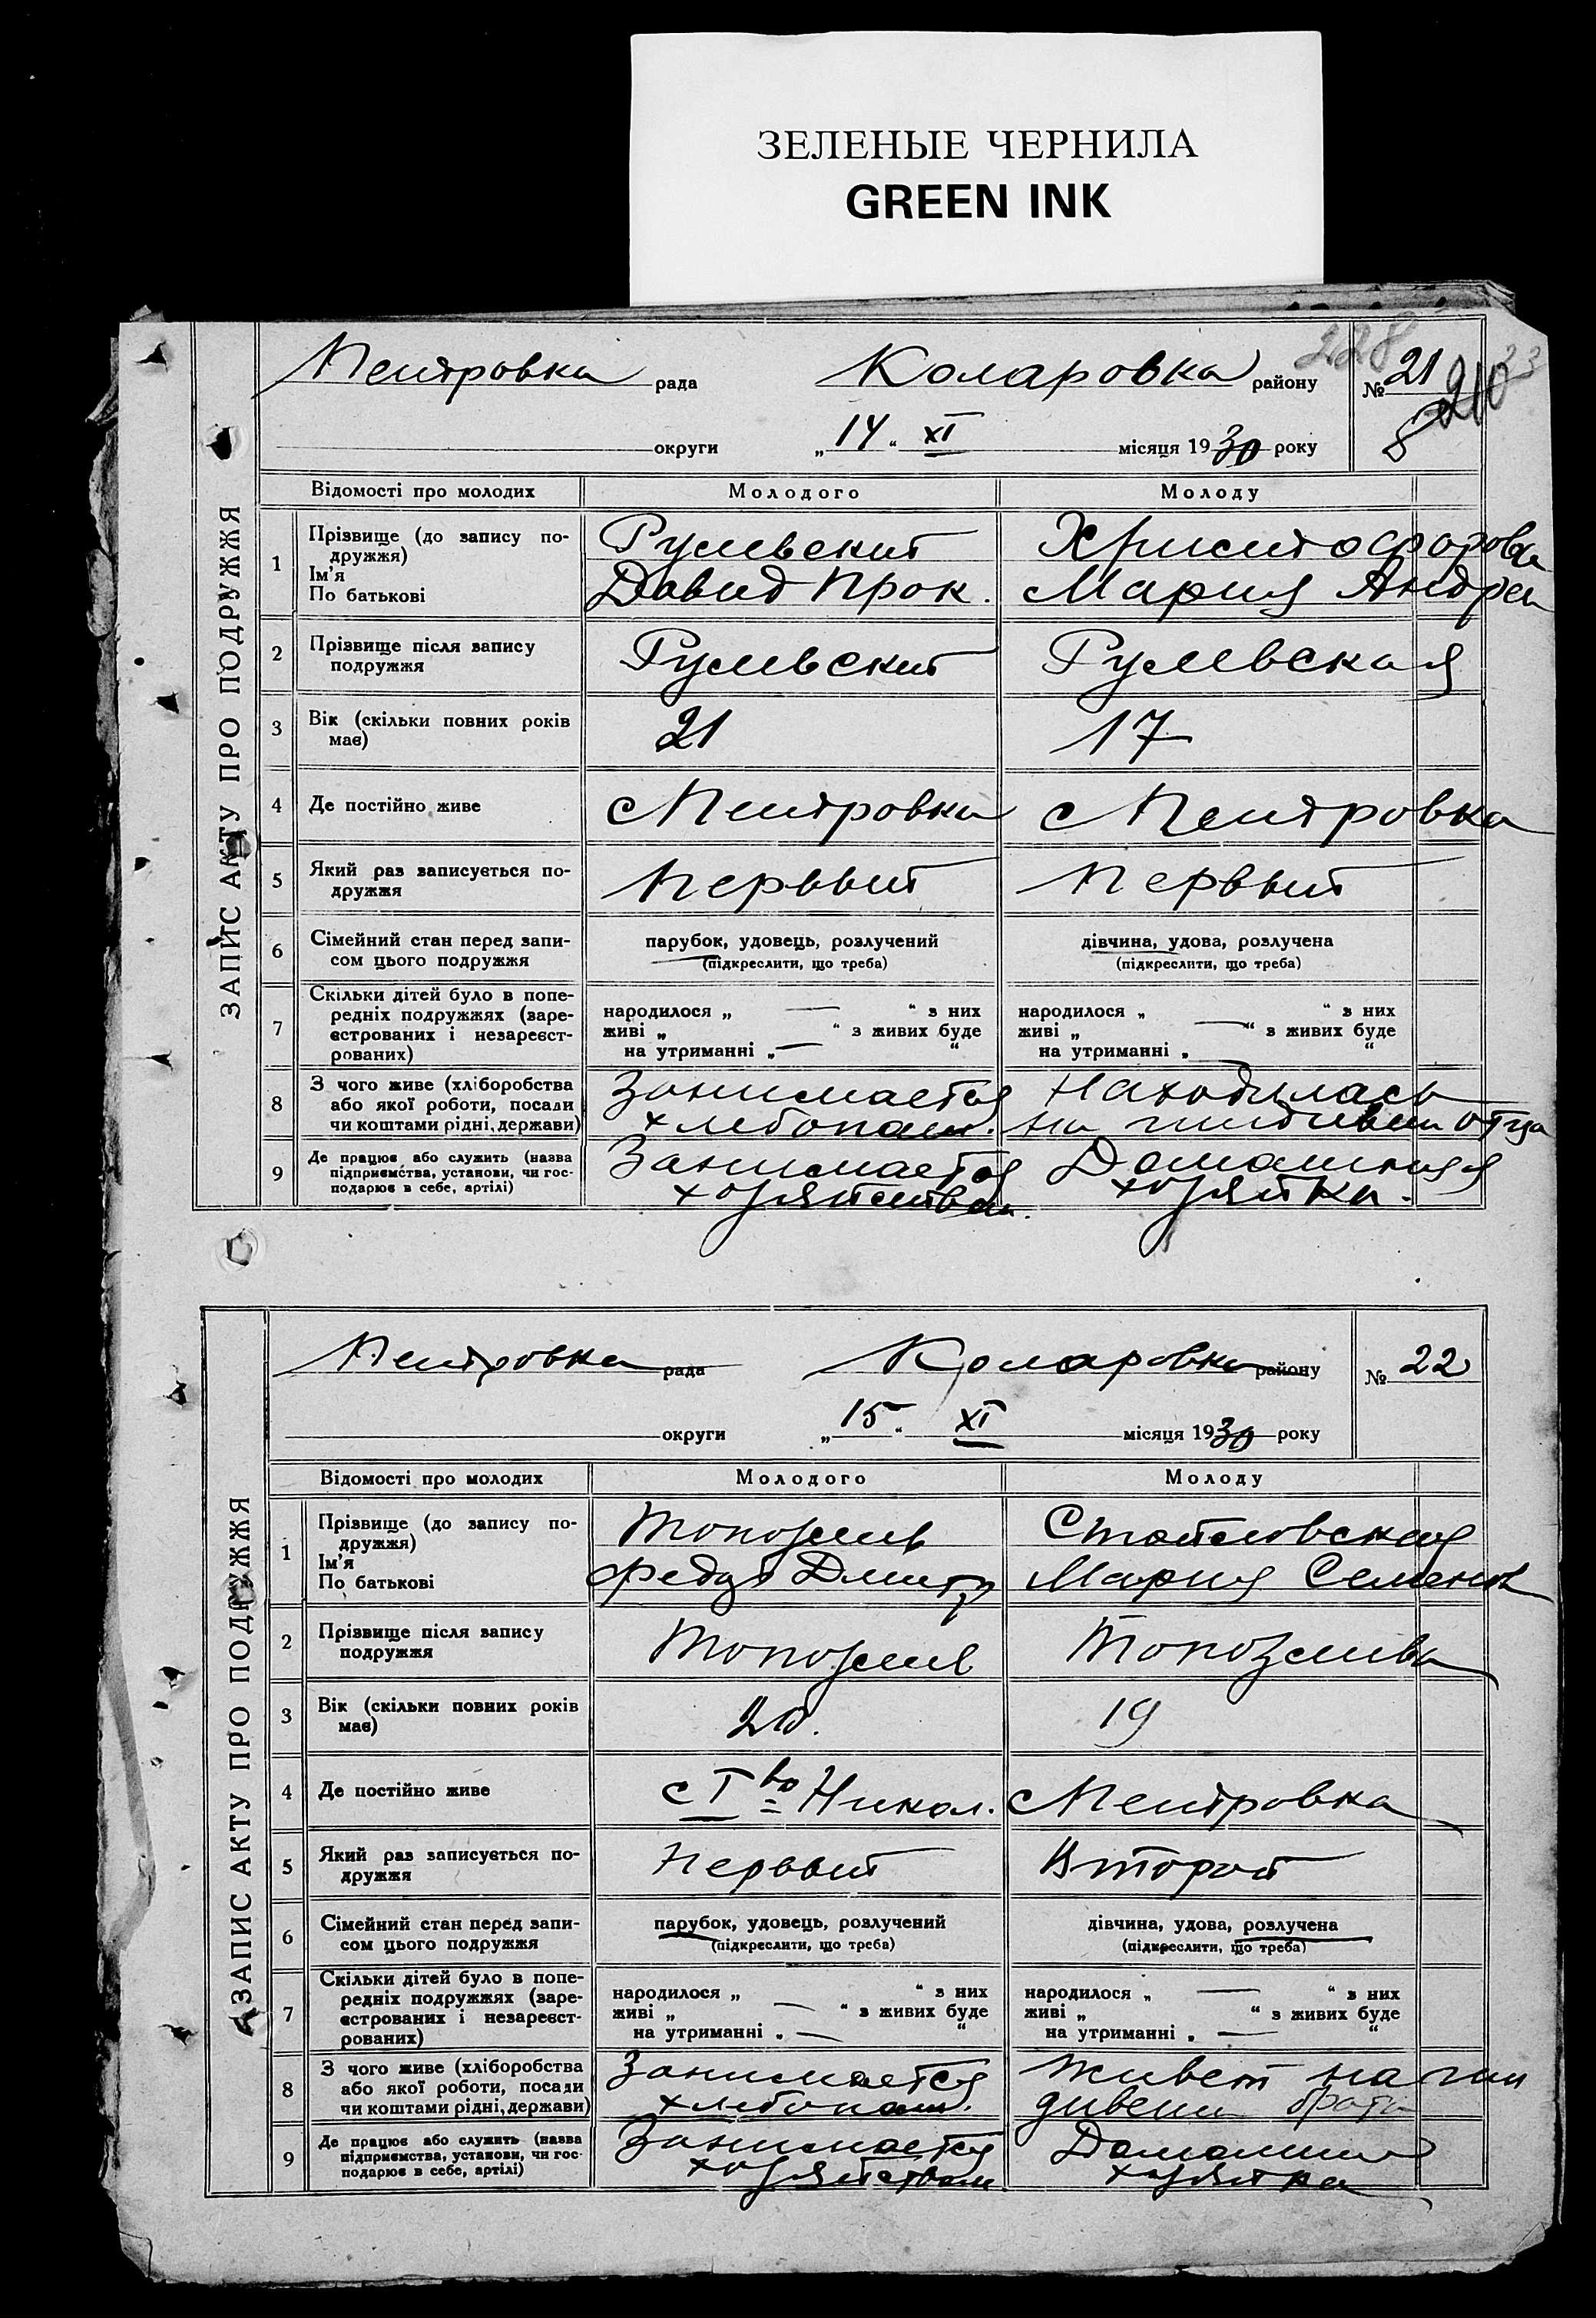 ЗЕЛЕНЫЕ ЧЕРНИЛА
GREEN INK
228
Петровка рада Коларовка району № 21
210 23
8
округи „14“ XI місяця 1930 року
ЗАПИС АКТУ ПРО ПОДРУЖЖЯ
Відомості про молодих Молодого Молоду
1 Прізвище (до запису по-
дружжя)
Ім’я
По батькові
Румевский Христофорова
Давид Прок. Мария Андреи
2 Прізвище після запису
подружжя
Румевский Румевская
3 Вік (скільки повних років
має)
21 17
4 Де постійно живе с Петровка с Петровка
5 Який раз записується по-
дружжя
Первый Первый
6 Сімейний стан перед запи-
сом цього подружжя
парубок, удовець, розлучений дівчина, удова, розлучена
(підкреслити, що треба) (підкреслити, що треба)
7 Скільки дітей було в попе-
редніх подружжях (заре-
єстрованих і незареєст-
рованих)
народилося „ — “ з них народилося „ “ з них
живі „ “ з живих буде живі „ — “ з живих буде
на утриманні „ — “ на утриманні „ “
8 З чого живе (хліборобства
або якої роботи, посади
чи коштами рідні, держави)
Занимается Находилась
хлебопаш. на иждивен отца
9 Де працює або служить (назва
підприємства, установи, чи гос-
подарює в себе, артілі)
Занимается Домашняя
хозяйством. хозяйка.
Петровка рада Коларовка району № 22
округи „15“ XI місяця 1930 року
ЗАПИС АКТУ ПРО ПОДРУЖЖЯ
Відомості про молодих Молодого Молоду
1 Прізвище (до запису по-
дружжя)
Ім’я
По батькові
Топозлив Стойловская
Федор Дмитр Мария Семенов
2 Прізвище після запису
подружжя
Топозлив Топозлива
3 Вік (скільки повних років
має)
20. 19
4 Де постійно живе с I во Никол. с Петровка
5 Який раз записується по-
дружжя
Первый Второй
6 Сімейний стан перед запи-
сом цього подружжя
парубок, удовець, розлучений дівчина, удова, розлучена
(підкреслити, що треба) (підкреслити, що треба)
7 Скільки дітей було в попе-
редніх подружжях (заре-
єстрованих і незареєст-
рованих)
народилося „ “ з них народилося „ — “ з них
живі „ — “ з живих буде живі „ “ з живих буде
на утриманні „ — “ на утриманні „ — “
8 З чого живе (хліборобства
або якої роботи, посади
чи коштами рідні, держави)
Занимается Живет на иж
хлебопаш. дивени брата
9 Де працює або служить (назва
підприємства, установи, чи гос-
подарює в себе, артілі)
Занимается Домашня
хозяйством хозяйка